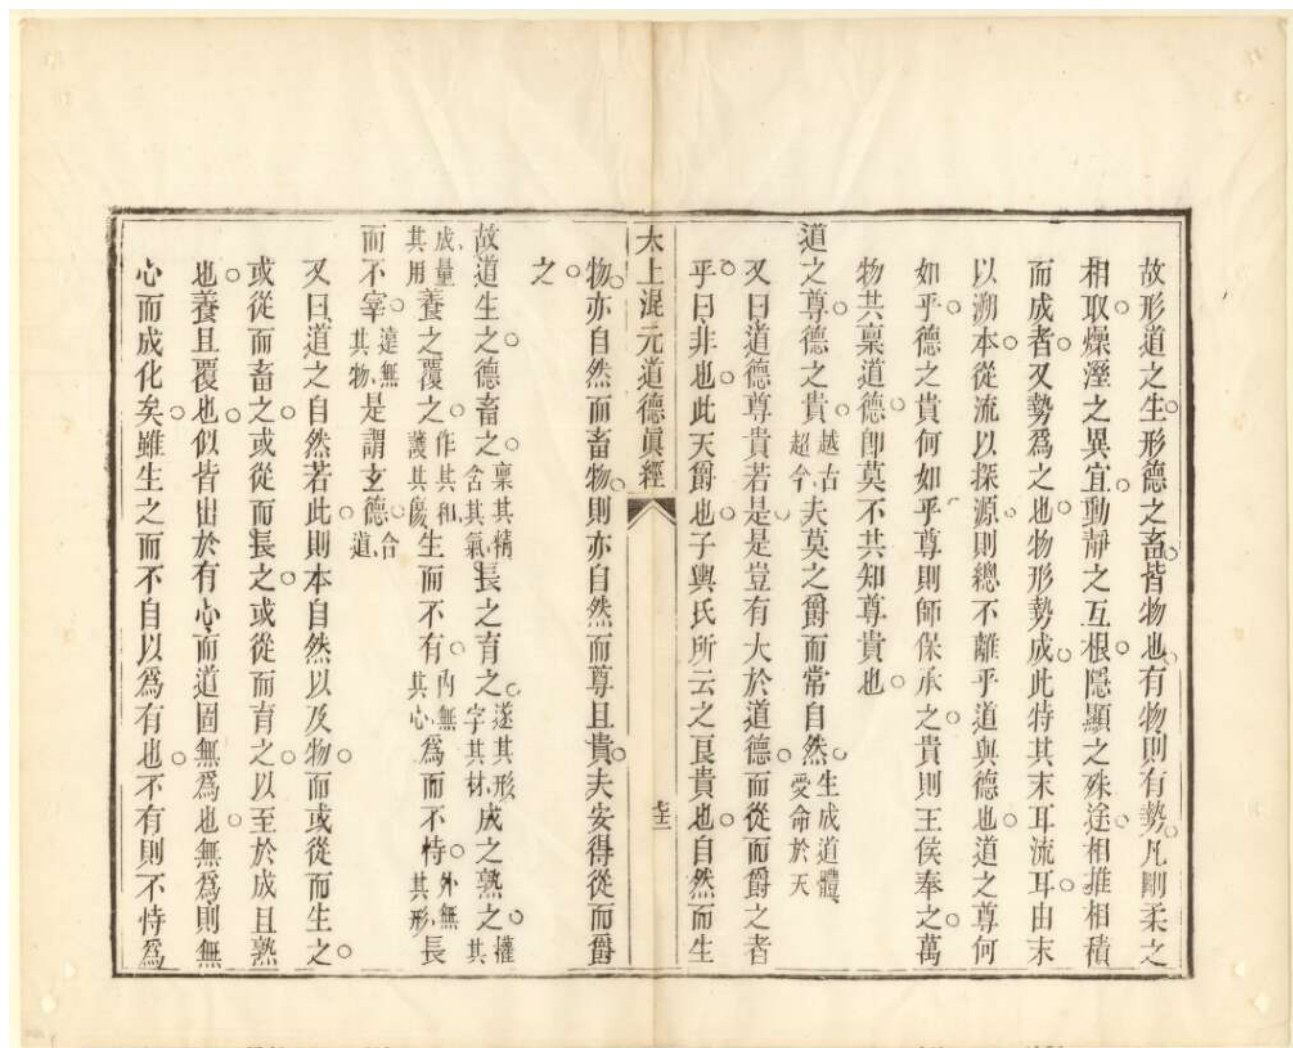 故形道之生。形德之畜。皆物也。有物則有勢。凡剛柔之
相取。燥溼之異宜。動靜之互根。隱顯之殊途。相推相積
而成者。又勢爲之也。物形勢成。此特其末耳流耳。由末
以溯本。從流以探源。則總不離乎道與德也。道之尊何
如乎。德之貴何如乎。尊則師保承之。貴則王侯奉之。萬
物共稟道德。卽莫不共知尊貴也。
道之尊。德之貴。越古超今、夫莫之爵而常自然。生成道體、受命於天
又曰、道德尊貴若是。是豈有大於道德。而從而爵之者
乎。曰、非也。此天爵也。子輿氏所云之良貴也。自然而生
太上混元道德眞經
七三
物。亦自然而畜物。則亦自然而尊且貴。夫安得從而爵
之。
故道生之。德畜之。稟其精、含其氣、長之育之。遂其形、字其材、成之熟之。其權
成量、其用養之覆之。作其和、護其傷、生而不有。內無其心、爲而不恃。外無其形、長
而不宰。達無其物、是謂玄德。合道、
又曰、道之自然若此。則本自然以及物。而或從而生之。
或從而畜之。或從而長之。或從而育之。以至於成且熟
也。養且覆也。似皆出於有心、而道固無爲也。無爲則無
心而成化矣。雖生之而不自以爲有也。不有則不恃爲